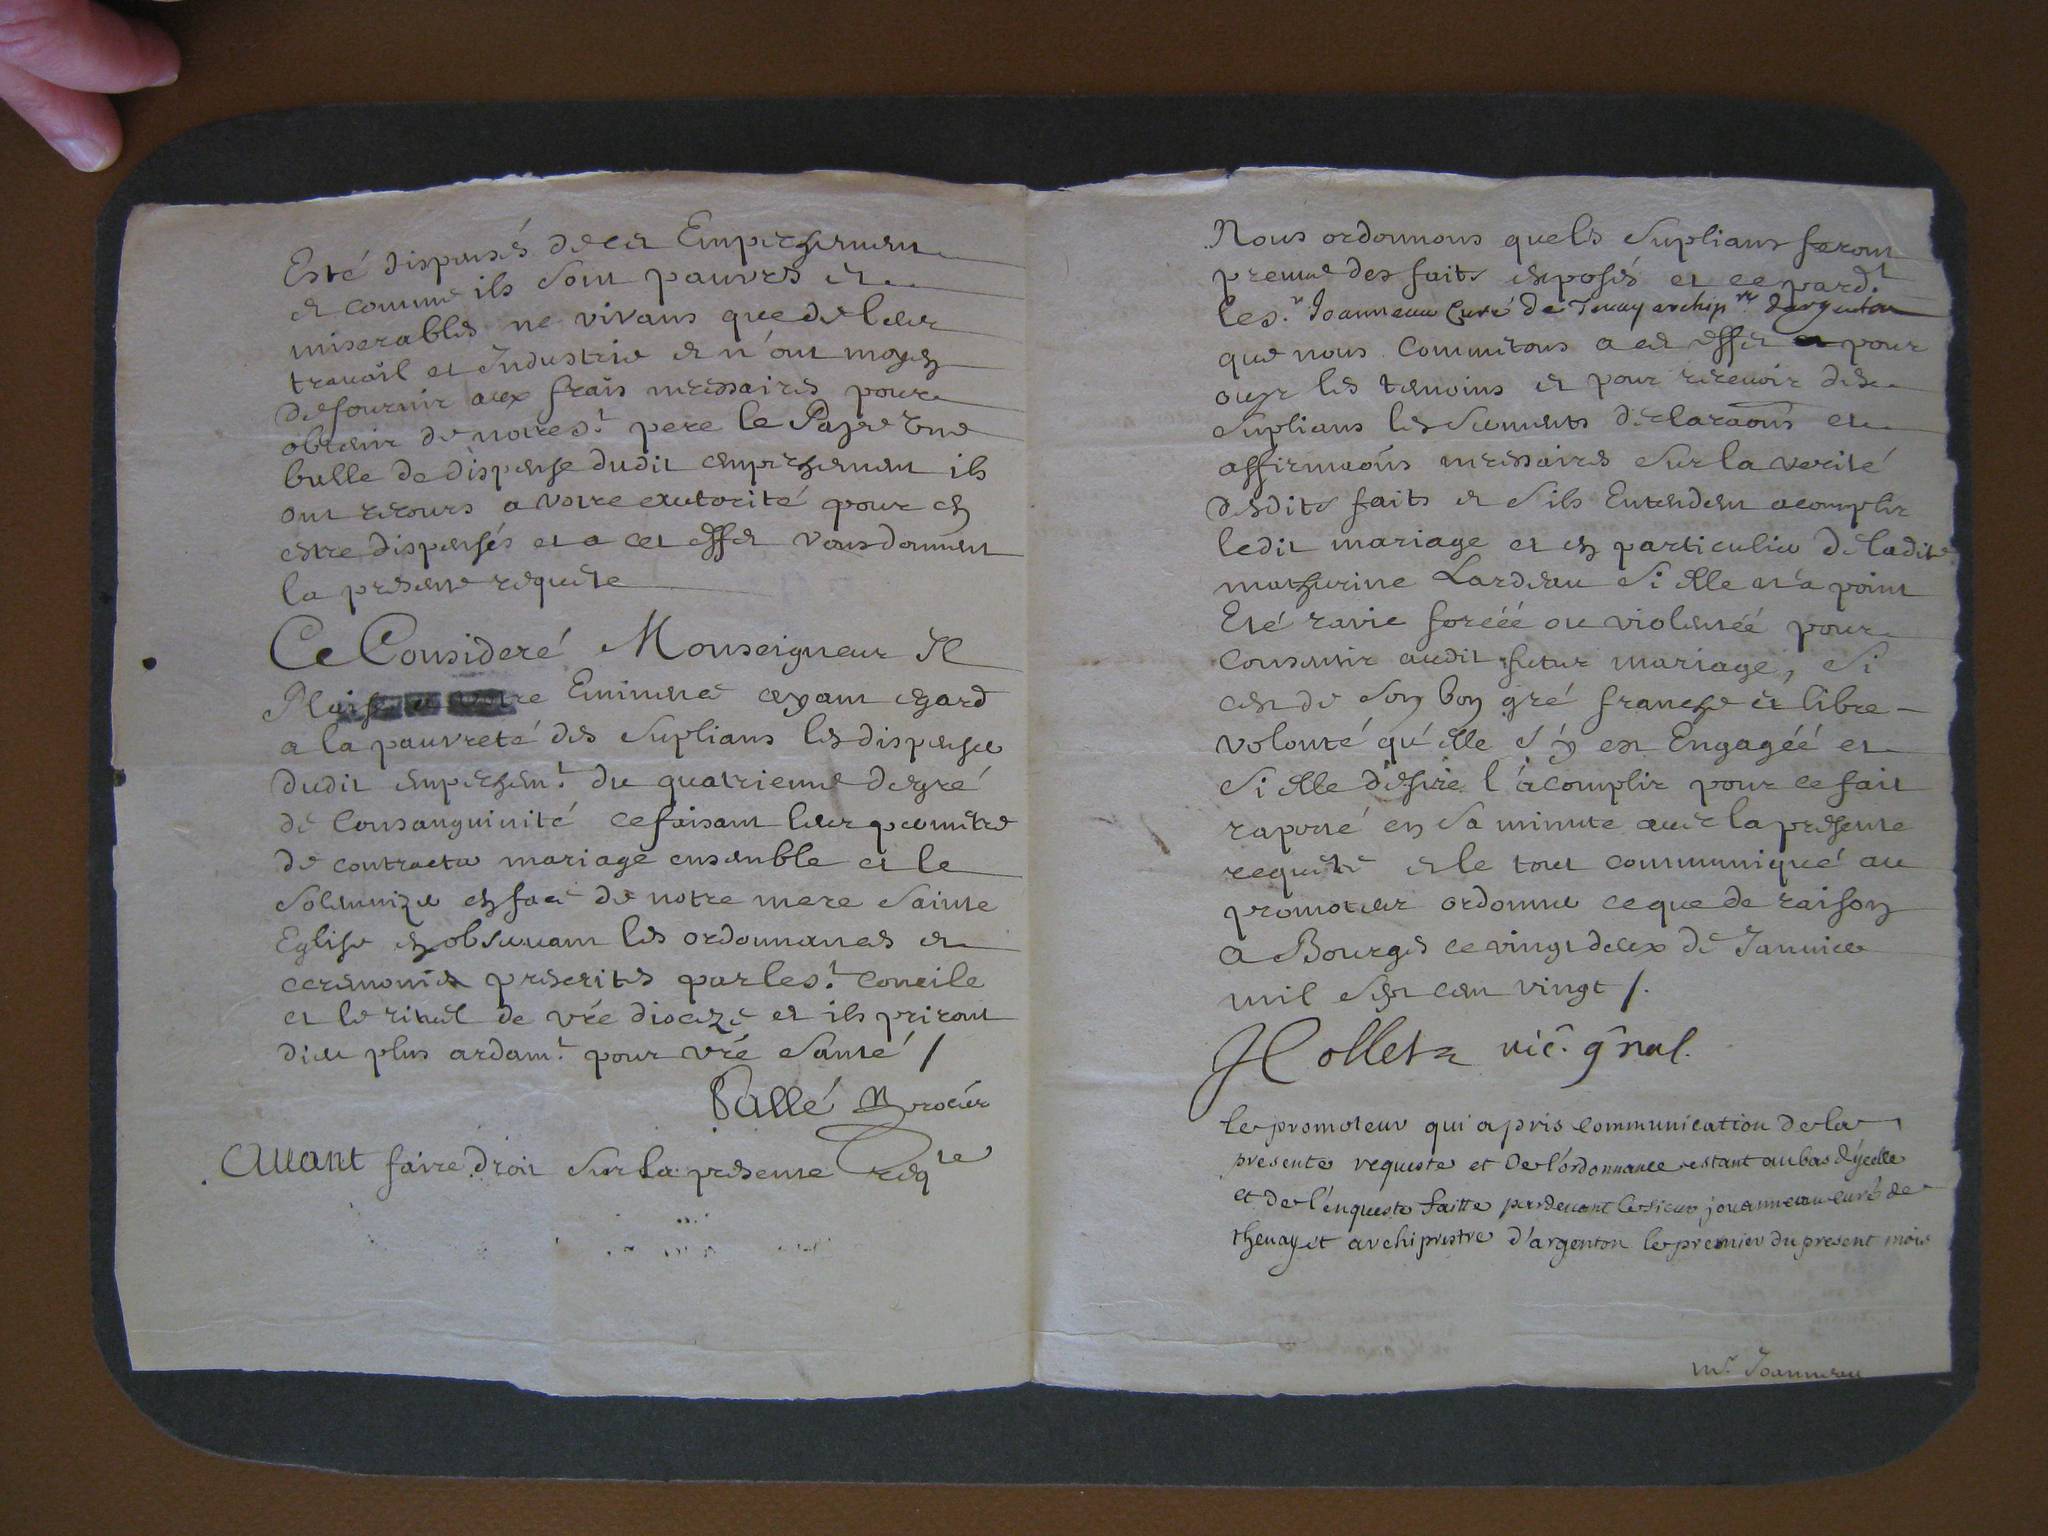 Esté dispensés de cet Empeschement
et comme ils sont pauvres et
miserables ne vivans que de leur
travail et Industrie et n'ont moyen
de fournir aux frais necessaires pour
obtenir de notre st. pere le Pape Une
bulle de dispense dudit empeschement ils
ont recours a votre autorité pour en
estre dispensés et a cet effet vous donnent
la presente requete
Ce Consideré Monseigneur Il
Plaise a votre Eminence ayant egard
a la pauvreté des suplians les dispenser
dudit empeschemt. du quatrieme degré
de Consanguinité ce faisant leur permettre
de contracter mariage ensemble et le
solemnizer en face de notre mere sainte
Eglise en observant les ordonnances et
ceremonies prescrites par le st. Concile
et le rituel de vré dioceze et ils priront
dieu plus ardamt. pour vré santé /
Vallé procur
Avant faire droit sur la presente reqte
Nous ordonnons que les suplians feront
preuve des faits exposés et ce pardt.
le sr. Joanneau Curé de Tenay archiptre. dargenton
que nous Commetons a cet effet pour
ouyr les temoins et pour recevoir des
suplians les serments declaraons et
affirmaons necessaires sur la verité
desdits faits et s'ils Entendent acomplir
ledit mariage et en particulier de ladite
mathurine Lardeau si elle n'a point
Eté ravie forcéé ou violentéé pour
Consentir audit futur mariage, si
cest de son bon gré franche et libre
volonté qu'elle s'y est Engagéé et
si elle desire l'acomplir pour ce fait
raporté en sa minute avec la presente
requete et le tout communiqué au
promoteur ordonner ce que de raison
a Bourges ce vingt deux de Janvier
mil sept cent vingt /.
Collet vic. gñal.
le promoteur qui a pris communication de la
presente requeste et de l'ordonnance estant au bas d'ycelle
et de l'enqueste faitte par devant le sieur jouanneau curé de
thenay et archiprestre d'argenton le premier du present mois
mr. Joanneau